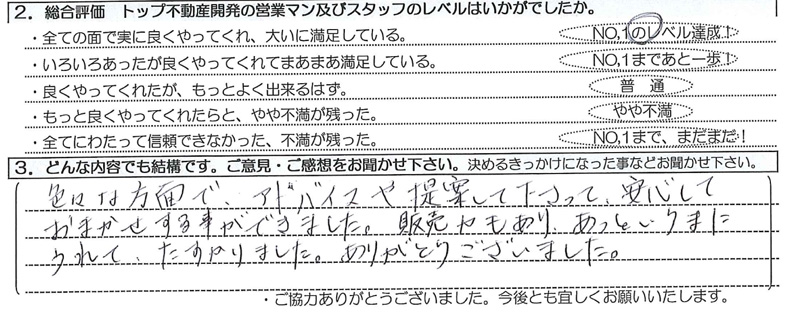 2. 総合評価 トップ不動産開発の営業マン及びスタッフのレベルはいかがでしたか。
・全ての面で実に良くやってくれ、大いに満足している。 NO,1のレベル達成！
・いろいろあったが良くやってくれてまあまあ満足している。 NO,1まであと一歩！
・良くやってくれたが、もっとよく出来るはず。 普 通
・もっと良くやってくれたらと、やや不満が残った。 やや不満
・全てにわたって信頼できなかった、不満が残った。 NO,1まで、まだまだ！
3. どんな内容でも結構です。ご意見・ご感想をお聞かせ下さい。決めるきっかけになった事などお聞かせ下さい。
色々な方面で、アドバイスや提案して下さって、安心して
おまかせする事ができました。販売力もあり、あっというまに
うれて、たすかりました。ありがとうございました。
・ご協力ありがとうございました。今後とも宜しくお願いいたします。